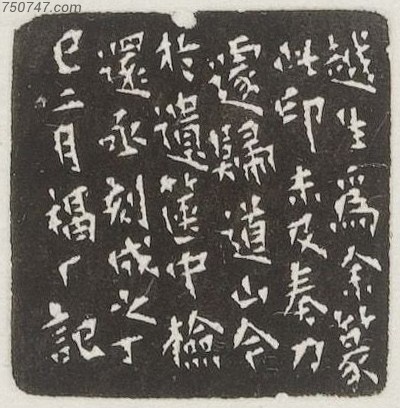 750747.com
越生為余篆
此印未及奏刀
遽歸道山今
於遺篋中檢
還丞刻成之丁
巳二月褐厂記